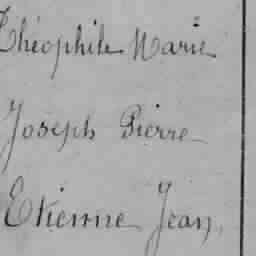 Théophile Marie
Joseph Pierre
Etienne Jean,